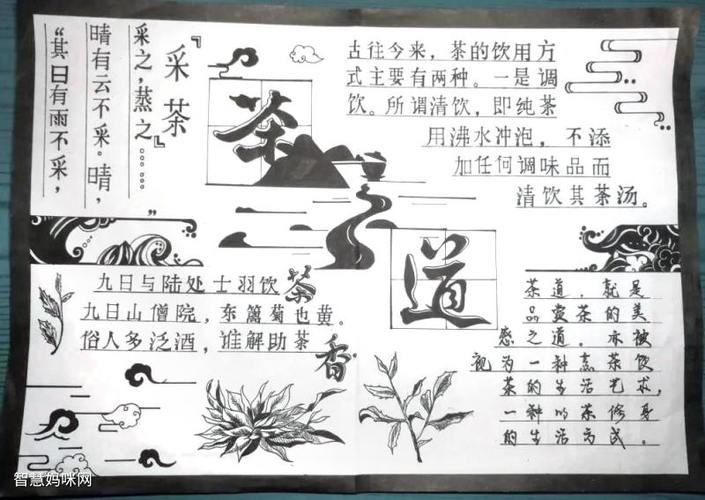 『采茶』
“其日有雨不采，
晴有云不采。晴，
采之，蒸之……”
茶
道
古往今来，茶的饮用方
式主要有两种。一是调
饮。所谓清饮，即纯茶
用沸水冲泡，不添
加任何调味品而
清饮其茶汤。
九日与陆处士羽饮茶
九日山僧院，东篱菊也黄。
俗人多泛酒，谁解助茶香
茶道，就是
品赏茶的美
感之道。亦被
视为一种烹茶饮
茶的生活艺术，
一种以茶修身
的生活方式。
智慧妈咪网